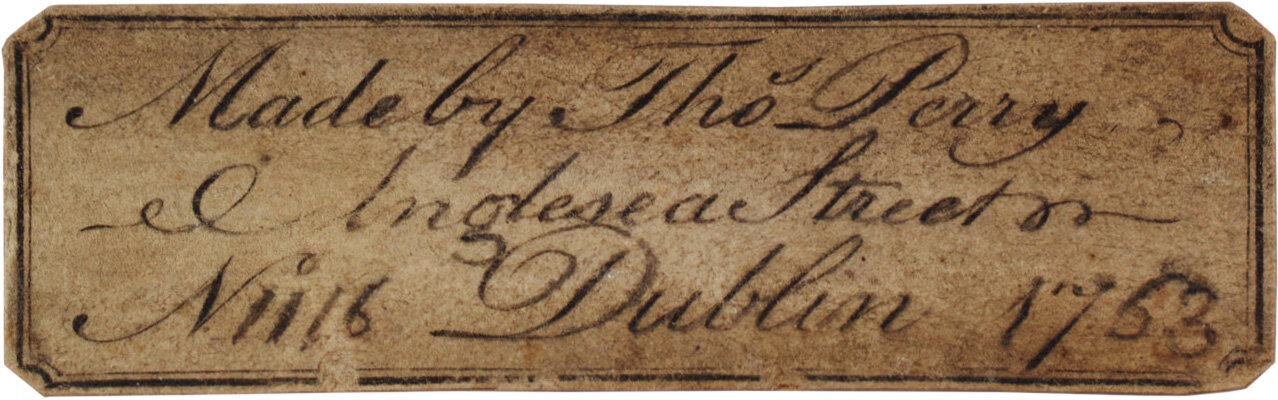 Made by Thos Perry
Anglesea Street
No 1116 Dublin 1763